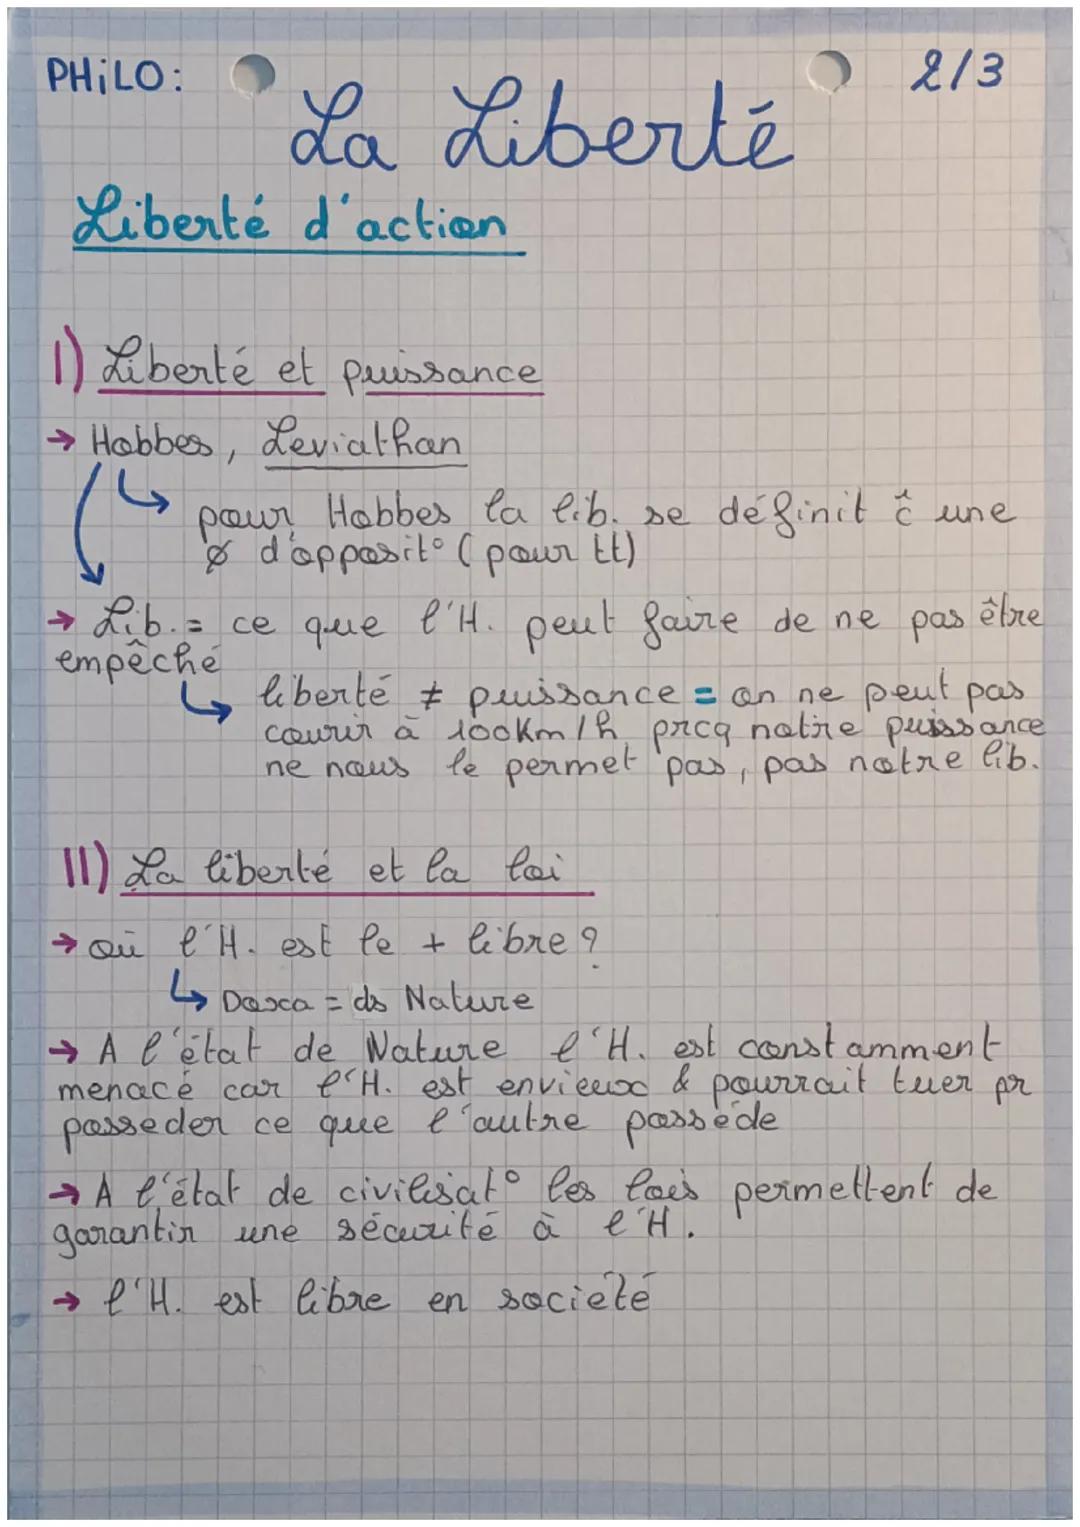 PHiLO:
2/3
La Liberté
Liberté d'action
I) Liberté et puissance
→ Hobbes, Leviathan
↳ pour Hobbes la lib. se définit ĉ une
Ø d'opposit° (pour tt)
→ Lib. = ce que l'H. peut faire de ne pas être
empêché
↳ liberté ≠ puissance = on ne peut pas
courir à 100Km/h prcq notre puissance
ne nous le permet pas, pas notre lib.
II) La liberté et la loi
→ où l'H. est le + libre ?
↳ Doxa = ds Nature
→ A l'état de Nature l'H. est constamment
menacé car l'H. est envieux & pourrait tuer pr
posseder ce que l'autre possède
→ A l'état de civilisat° les lois permettent de
garantir une sécurité à l'H.
→ l'H. est libre en société